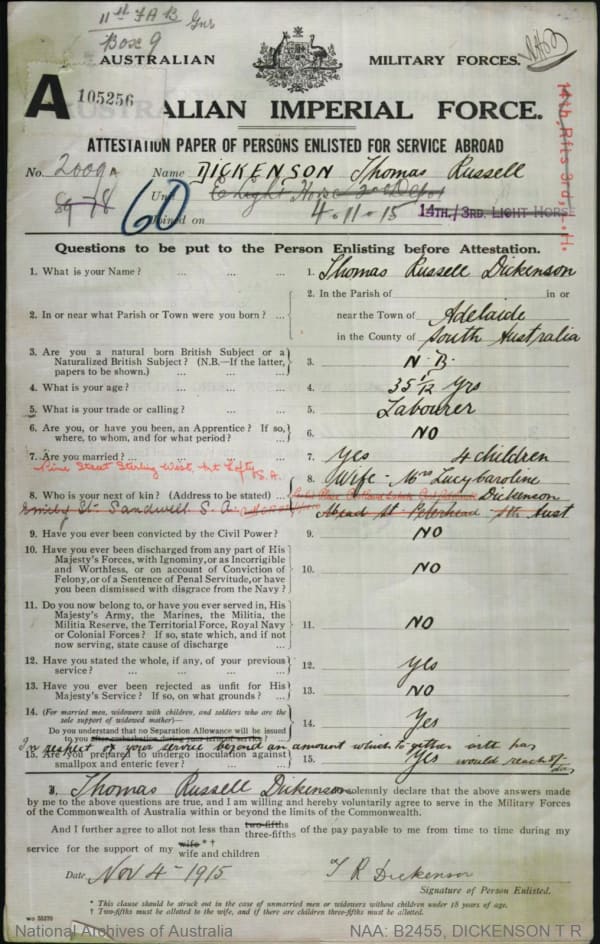 11th FAB Gnr
Box 9
AUSTRALIAN MILITARY FORCES.
A 105256
AUSTRALIAN IMPERIAL FORCE.
14th Rfts 3rd L.H.
ATTESTATION PAPER OF PERSONS ENLISTED FOR SERVICE ABROAD
No. 2009A Name DICKENSON Thomas Russell
8978 Unit E Light Horse Depot
60 Joined on 4.11.15 14TH./3RD. LIGHT HORSE
Questions to be put to the Person Enlisting before Attestation.
1. What is your Name? ... ... ... 1. Thomas Russell Dickenson
2. In or near what Parish or Town were you born? ... 2. In the Parish of in or
near the Town of Adelaide
in the County of South Australia
3. Are you a natural born British Subject or a Naturalized British Subject? (N.B.—If the latter, papers to be shown.) ... ... 3. N.B.
4. What is your age? ... ... ... 4. 35 1/12 Yrs
5. What is your trade or calling? ... ... 5. Labourer
6. Are you, or have you been, an Apprentice? If so, where, to whom, and for what period? ... 6. NO
7. Are you married? ... ... ... 7. Yes 4 children
Pine Street Stirling West, Mt Lofty S.A.
8. Who is your next of kin? (Address to be stated) ... 8. Wife - Mrs Lucy Caroline Dickenson
Emily St Sandwell S.A.
Mead St Peterhead Sth Aust
9. Have you ever been convicted by the Civil Power? 9. NO
10. Have you ever been discharged from any part of His Majesty's Forces, with Ignominy, or as Incorrigible and Worthless, or on account of Conviction of Felony, or of a Sentence of Penal Servitude, or have you been dismissed with disgrace from the Navy? 10. NO
11. Do you now belong to, or have you ever served in, His Majesty's Army, the Marines, the Militia, the Militia Reserve, the Territorial Force, Royal Navy or Colonial Forces? If so, state which, and if not now serving, state cause of discharge ... 11. NO
12. Have you stated the whole, if any, of your previous service? ... ... ... 12. Yes
13. Have you ever been rejected as unfit for His Majesty's Service? If so, on what grounds? ... 13. NO
14. (For married men, widowers with children, and soldiers who are the sole support of widowed mother)—
Do you understand that no Separation Allowance will be issued to you after embarkation during your term of service? 14. Yes
In respect of your service beyond an amount which together with pay would reach 8/- day
15. Are you prepared to undergo inoculation against smallpox and enteric fever? ... ... 15. Yes
I, Thomas Russell Dickenson solemnly declare that the above answers made
by me to the above questions are true, and I am willing and hereby voluntarily agree to serve in the Military Forces
of the Commonwealth of Australia within or beyond the limits of the Commonwealth.
And I further agree to allot not less than two-fifths three-fifths of the pay payable to me from time to time during my
service for the support of my wife * † wife and children
Date Nov 4 - 1915 T R Dickenson
Signature of Person Enlisted.
* This clause should be struck out in the case of unmarried men or widowers without children under 18 years of age.
† Two-fifths must be allotted to the wife, and if there are children three-fifths must be allotted.
National Archives of Australia NAA: B2455, DICKENSON T R